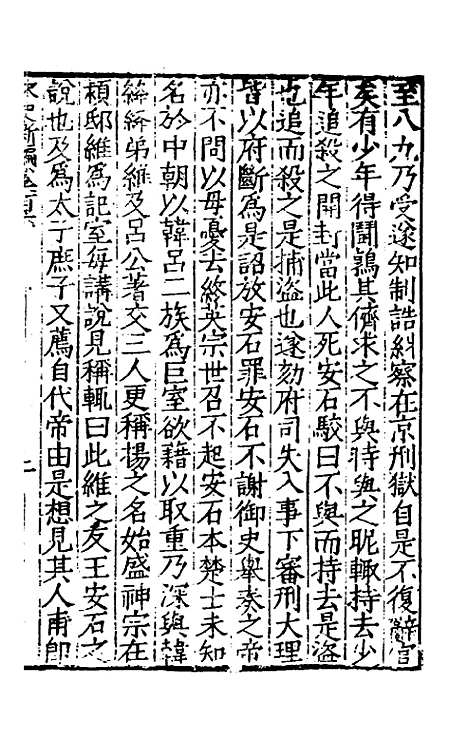 至八九乃受遂知制誥糾察在京刑獄自是不復辭官
矣有少年得鬭鶉其儕求之不與恃與之昵輒持去少
年追殺之開封當此人死安石駮曰不與而持去是盜
也追而殺之是捕盜也遂劾府司失入事下審刑大理
皆以府斷為是詔放安石罪安石不謝御史舉奏之帝
亦不問以母憂去終英宗世召不起安石本楚士未知
名於中朝以韓呂二族為巨室欲藉以取重乃深與韓
絳絳弟維及呂公著交三人更稱揚之名始盛神宗在
穎邸維為記室每講說見稱輒曰此維之友王安石之
說也及為太子庶子又薦自代帝由是想見其人甫即
宋史新編卷一百六
二